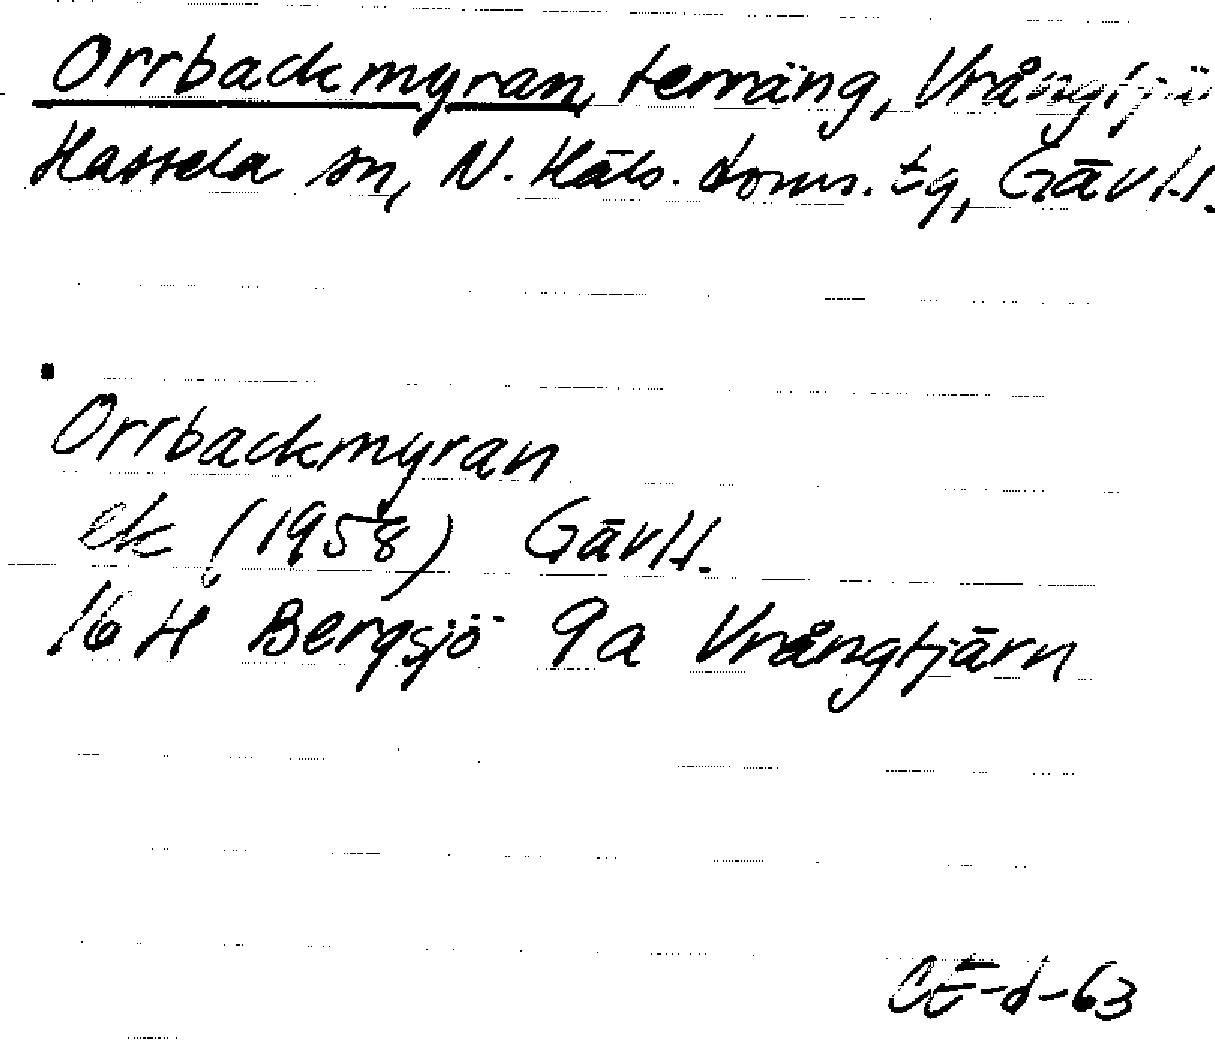 Orrbackmyran, terräng, Vrångtjä
Hassela sn, N. Häls. doms. tg, Gävl.l.
Orrbackmyran
ek (1958) Gävl.l.
16 H Bergsjö 9a Vrångtjärn
CE-d-63